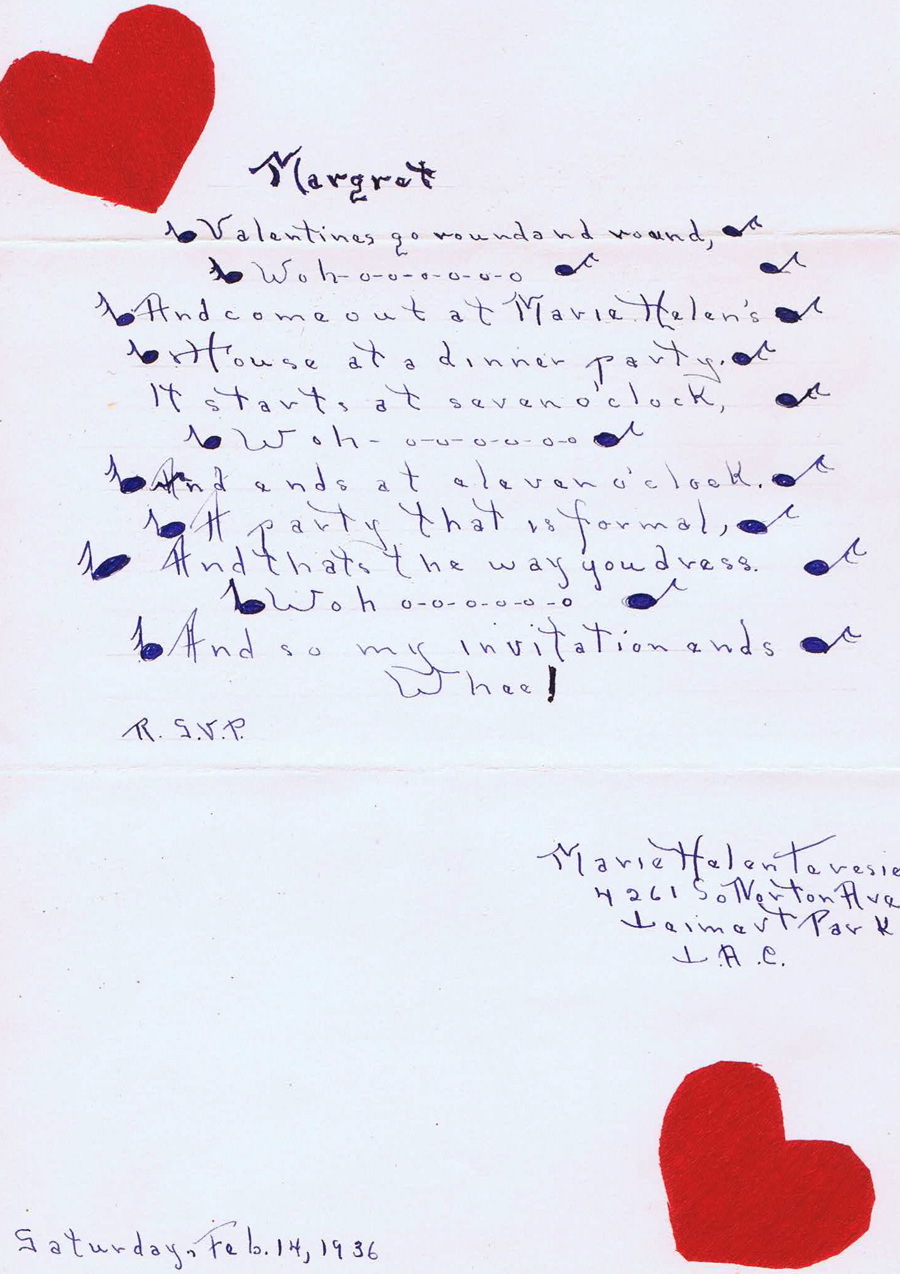 Margret
Valentines go round and round,
Woh-o-o-o-o-o-o
And come out at Marie Helen's
House at a dinner party.
It starts at seven o'clock,
Woh- o-o-o-o-o-o
And ends at eleven o'clock.
A party that is formal,
And thats the way you dress.
Woh o-o-o-o-o-o
And so my invitation ends
Whee!
R.S.V.P.
Marie Helen Teresie
4261 So Norton Ave
Leimert Park
L.A.C.
Saturday, Feb. 14, 1936